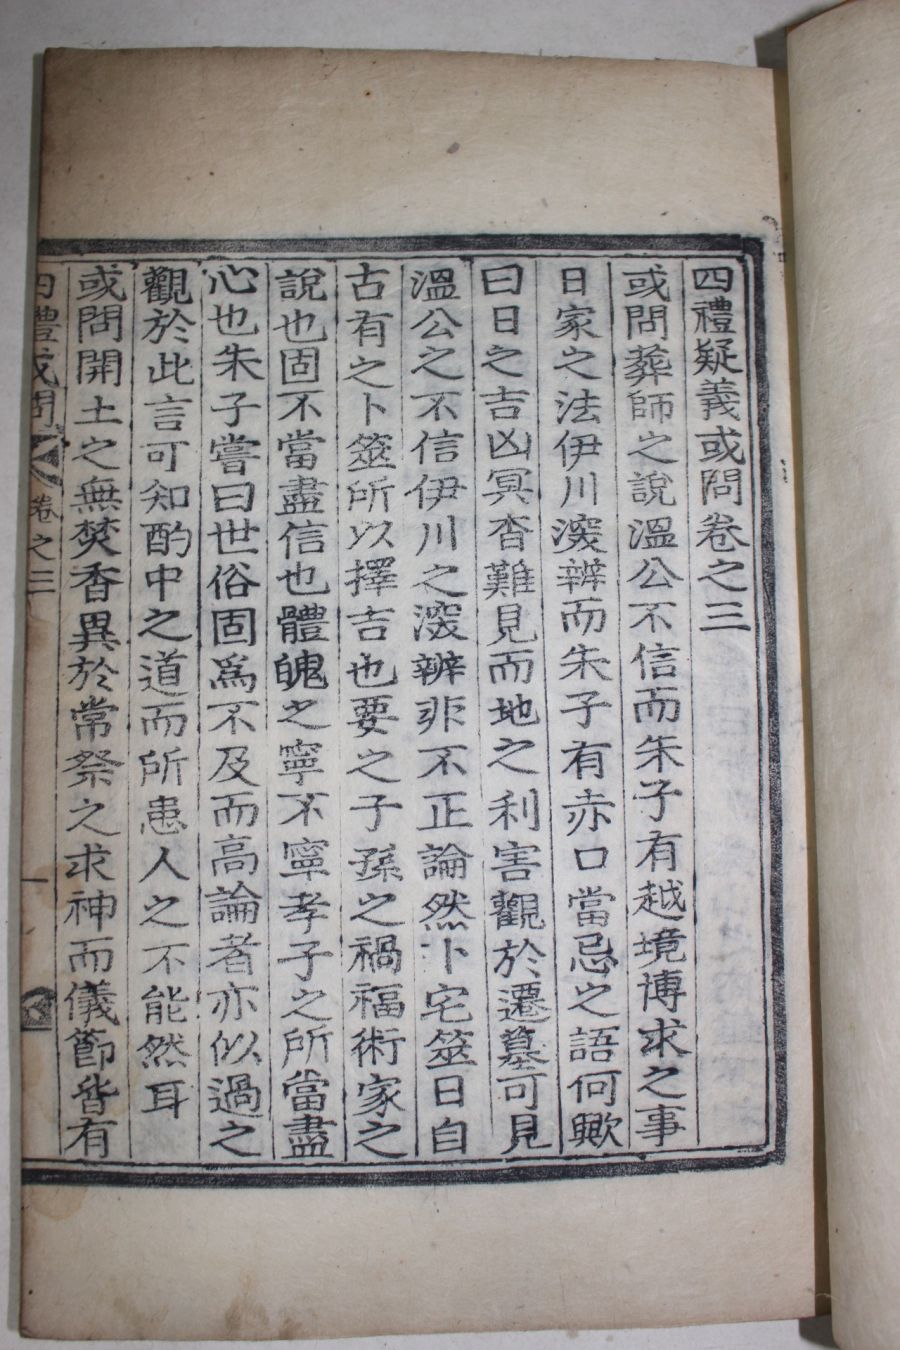 四禮疑義或問卷之三
或問葬師之說溫公不信而朱子有越境博求之事
日家之法伊川深辨而朱子有赤口當忌之語何歟
曰日之吉凶冥杳難見而地之利害觀於遷墓可見
溫公之不信伊川之深辨非不正論然卜宅筮日自
古有之卜筮所以擇吉也要之子孫之禍福術家之
說也固不當盡信也體魄之寧不寧孝子之所當盡
心也朱子嘗曰世俗固爲不及而高論者亦似過之
觀於此言可知酌中之道而所患人之不能然耳
或問開土之無焚香異於常祭之求神而儀節皆有
四禮或問 卷之三 一